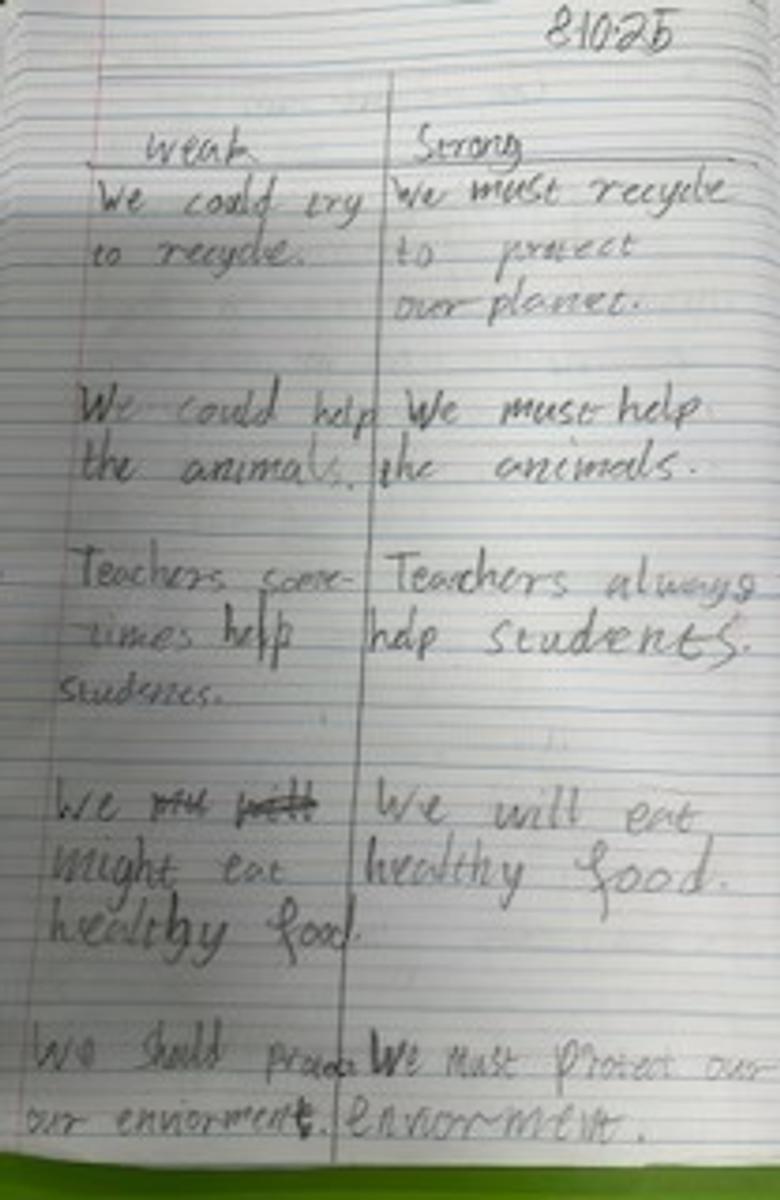 8.10.25
Weak
Strong
We could try
to recycle.
We must recycle
to protect
our planet.
We could help
the animals.
We must help
the animals.
Teachers some-
times help
students.
Teachers always
help students.
We
might eat
healthy food.
We will eat
healthy food.
We should protect
our enviorment.
We must protect our
enviorment.